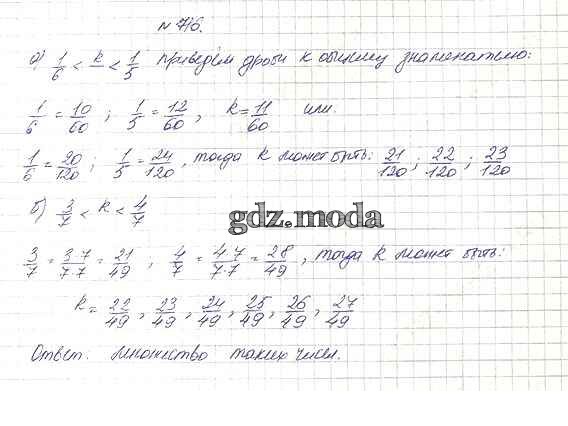 № 716.
а) 1/6 < k < 1/5 приведём дроби к общему знаменателю:
1/6 = 10/60 ; 1/5 = 12/60 , k = 11/60 или.
1/6 = 20/120 ; 1/5 = 24/120 , тогда k может быть: 21/120 ; 22/120 ; 23/120
б) 3/7 < k < 4/7
gdz.moda
3/7 = 3·7/7·7 = 21/49 ; 4/7 = 4·7/7·7 = 28/49 , тогда k может быть:
k = 22/49 , 23/49 , 24/49 , 25/49 , 26/49 , 27/49
Ответ. Множество таких чисел.